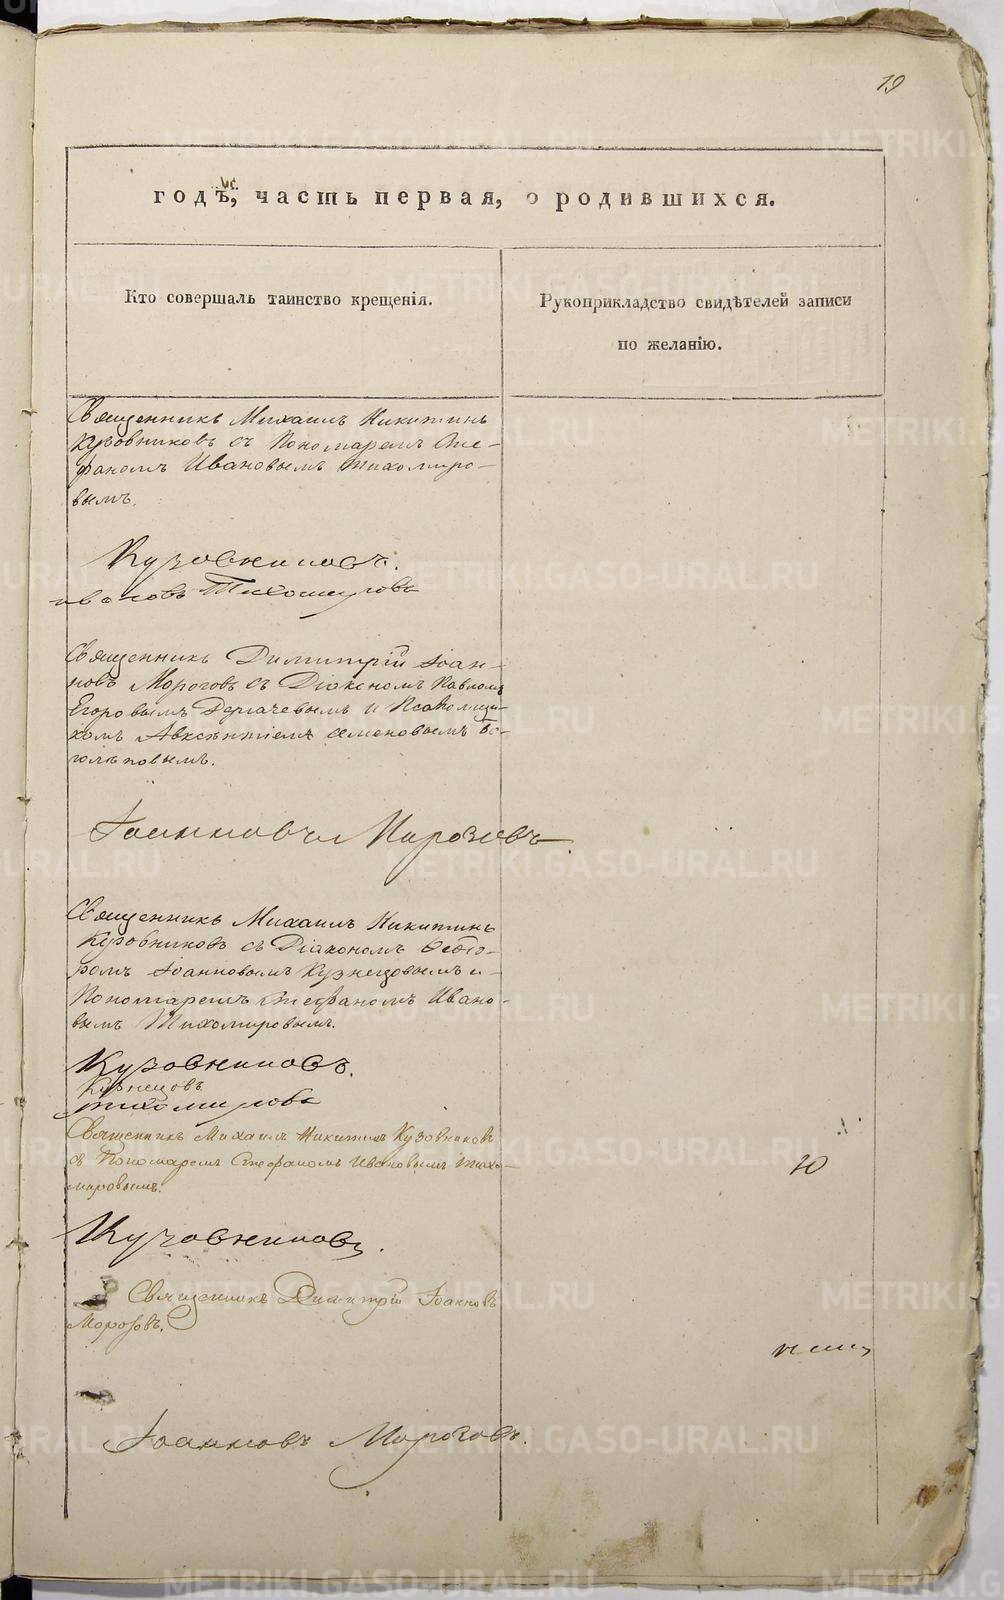 19
годъ, часть первая, о родившихся.
Кто совершалъ таинство крещенія.
Рукоприкладство свидѣтелей записи
по желанію.
Священникъ Михаилъ Никитинъ
Кузовниковъ съ Пономаремъ Сте-
фаномъ Ивановымъ Тихомиро-
вымъ.
Кузовниковъ.
Ивановъ Тихомировъ
Священникъ Димитрій Іоан-
новъ Морозовъ съ Діакономъ Павломъ
Егоровымъ Дерзачевымъ и Псаломщи-
комъ Авксентіемъ Семеновымъ Бо-
голѣповымъ.
Іоанновъ Морозовъ.
Священникъ Михаилъ Никитинъ
Кузовниковъ съ Діакономъ Ѳеодо-
ромъ Іоанновымъ Кузнецовымъ и
Пономаремъ Стефаномъ Ивано-
вымъ Тихомировымъ.
Кузовниковъ.
Кузнецовъ
Тихомировъ
Священникъ Михаилъ Никитинъ Кузовниковъ
съ Пономаремъ Стефаномъ Ивановымъ Тихо-
мировымъ.
Ю
Кузовниковъ.
Священникъ Димитрій Іоанновъ
Морозовъ.
Іоанновъ Морозовъ.
METRIKI.GASO-URAL.RU